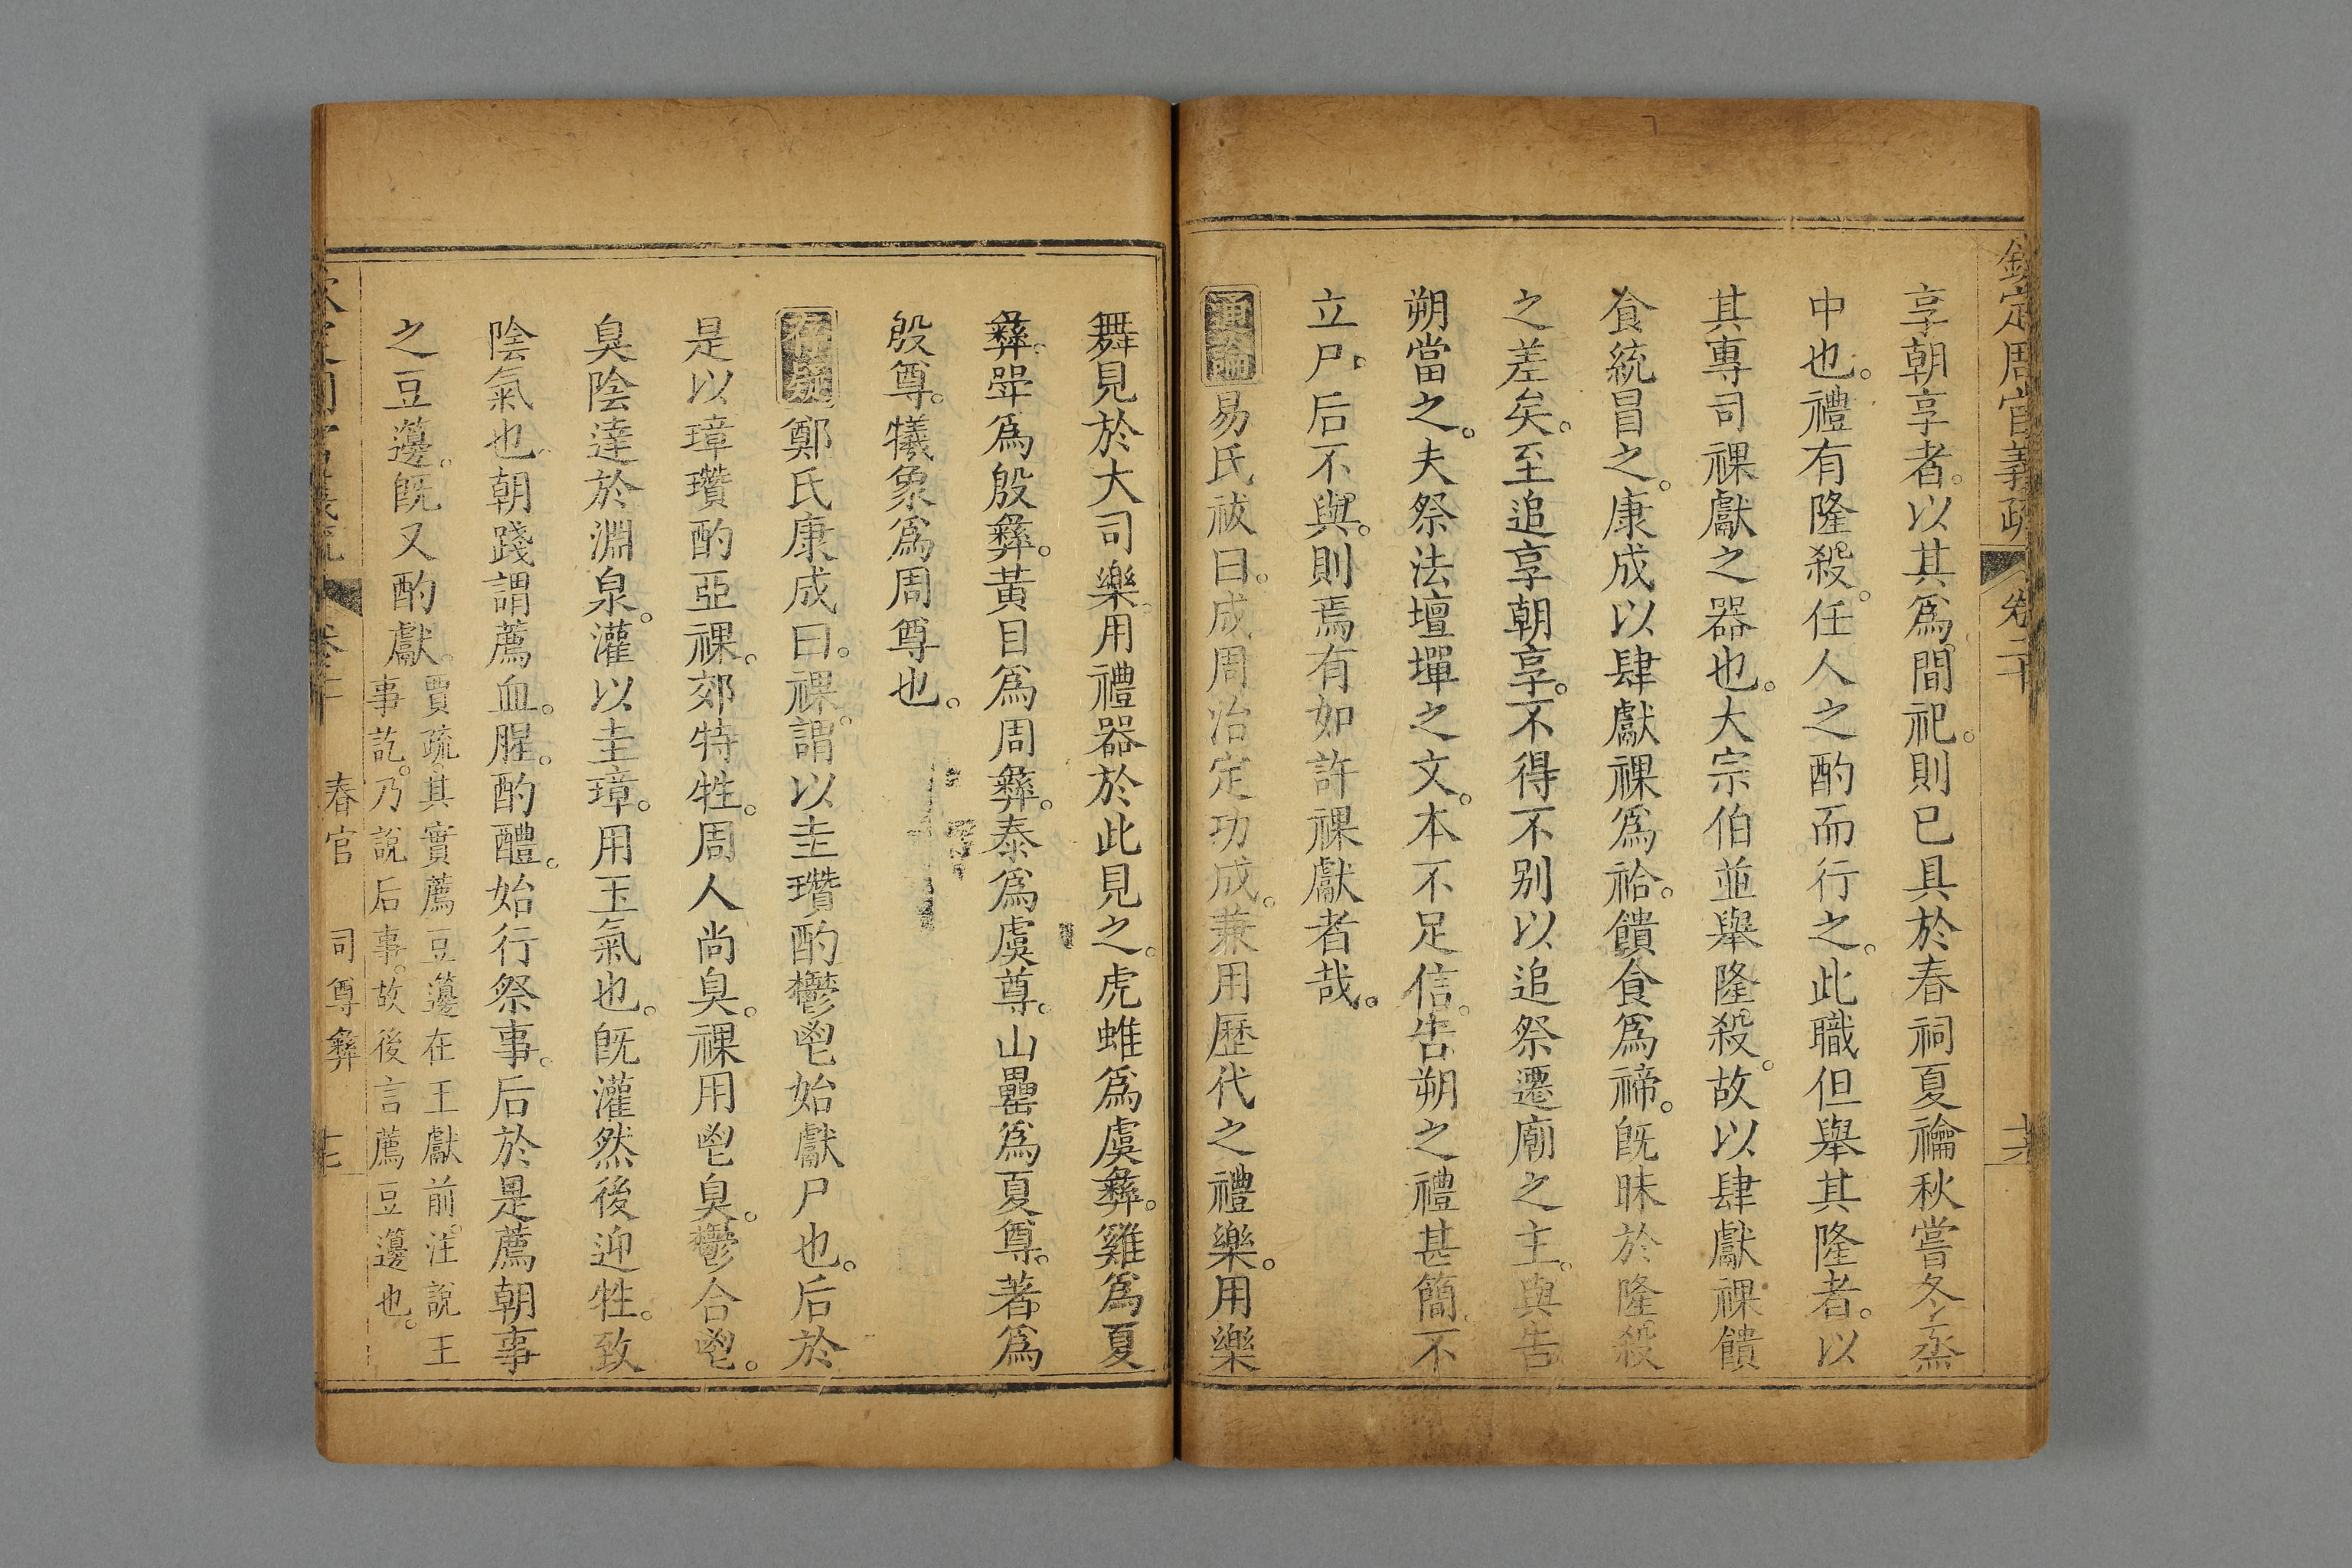 欽定周官義疏 卷二十
享朝享者。以其爲間祀。則已具於春祠夏禴秋嘗冬烝
中也。禮有隆殺。任人之酌而行之。此職但舉其隆者。以
其專司祼獻之器也。大宗伯並舉隆殺。故以肆獻祼饋
食統冒之。康成以肆獻祼爲祫。饋食爲禘。旣昧於隆殺
之差矣。至追享朝享。不得不别以追祭遷廟之主。與告
朔當之。夫祭法壇墠之文。本不足信。告朔之禮甚簡。不
立尸。后不與。則焉有如許祼獻者哉。
通論易氏祓曰。成周治定功成。兼用歷代之禮樂。用樂
舞見於大司樂。用禮器於此見之。虎蜼爲虞彝。雞爲夏
彝。斝爲殷彝。黃目爲周彝。泰爲虞尊。山罍爲夏尊。著爲
殷尊。犧象爲周尊也。
存疑鄭氏康成曰。祼。謂以圭瓚酌鬱鬯始獻尸也。后於
是以璋瓚酌亞祼。郊特牲。周人尚臭。祼用鬯臭。鬱合鬯。
臭陰達於淵泉。灌以圭璋。用玉氣也。旣灌然後迎牲。致
陰氣也。朝踐謂薦血。腥。酌醴。始行祭事。后於是薦朝事
之豆籩。旣又酌獻。賈疏。其實薦豆籩在王獻前。注說王
事訖。乃說后事。故後言薦豆籩也。
春官 司尊彝